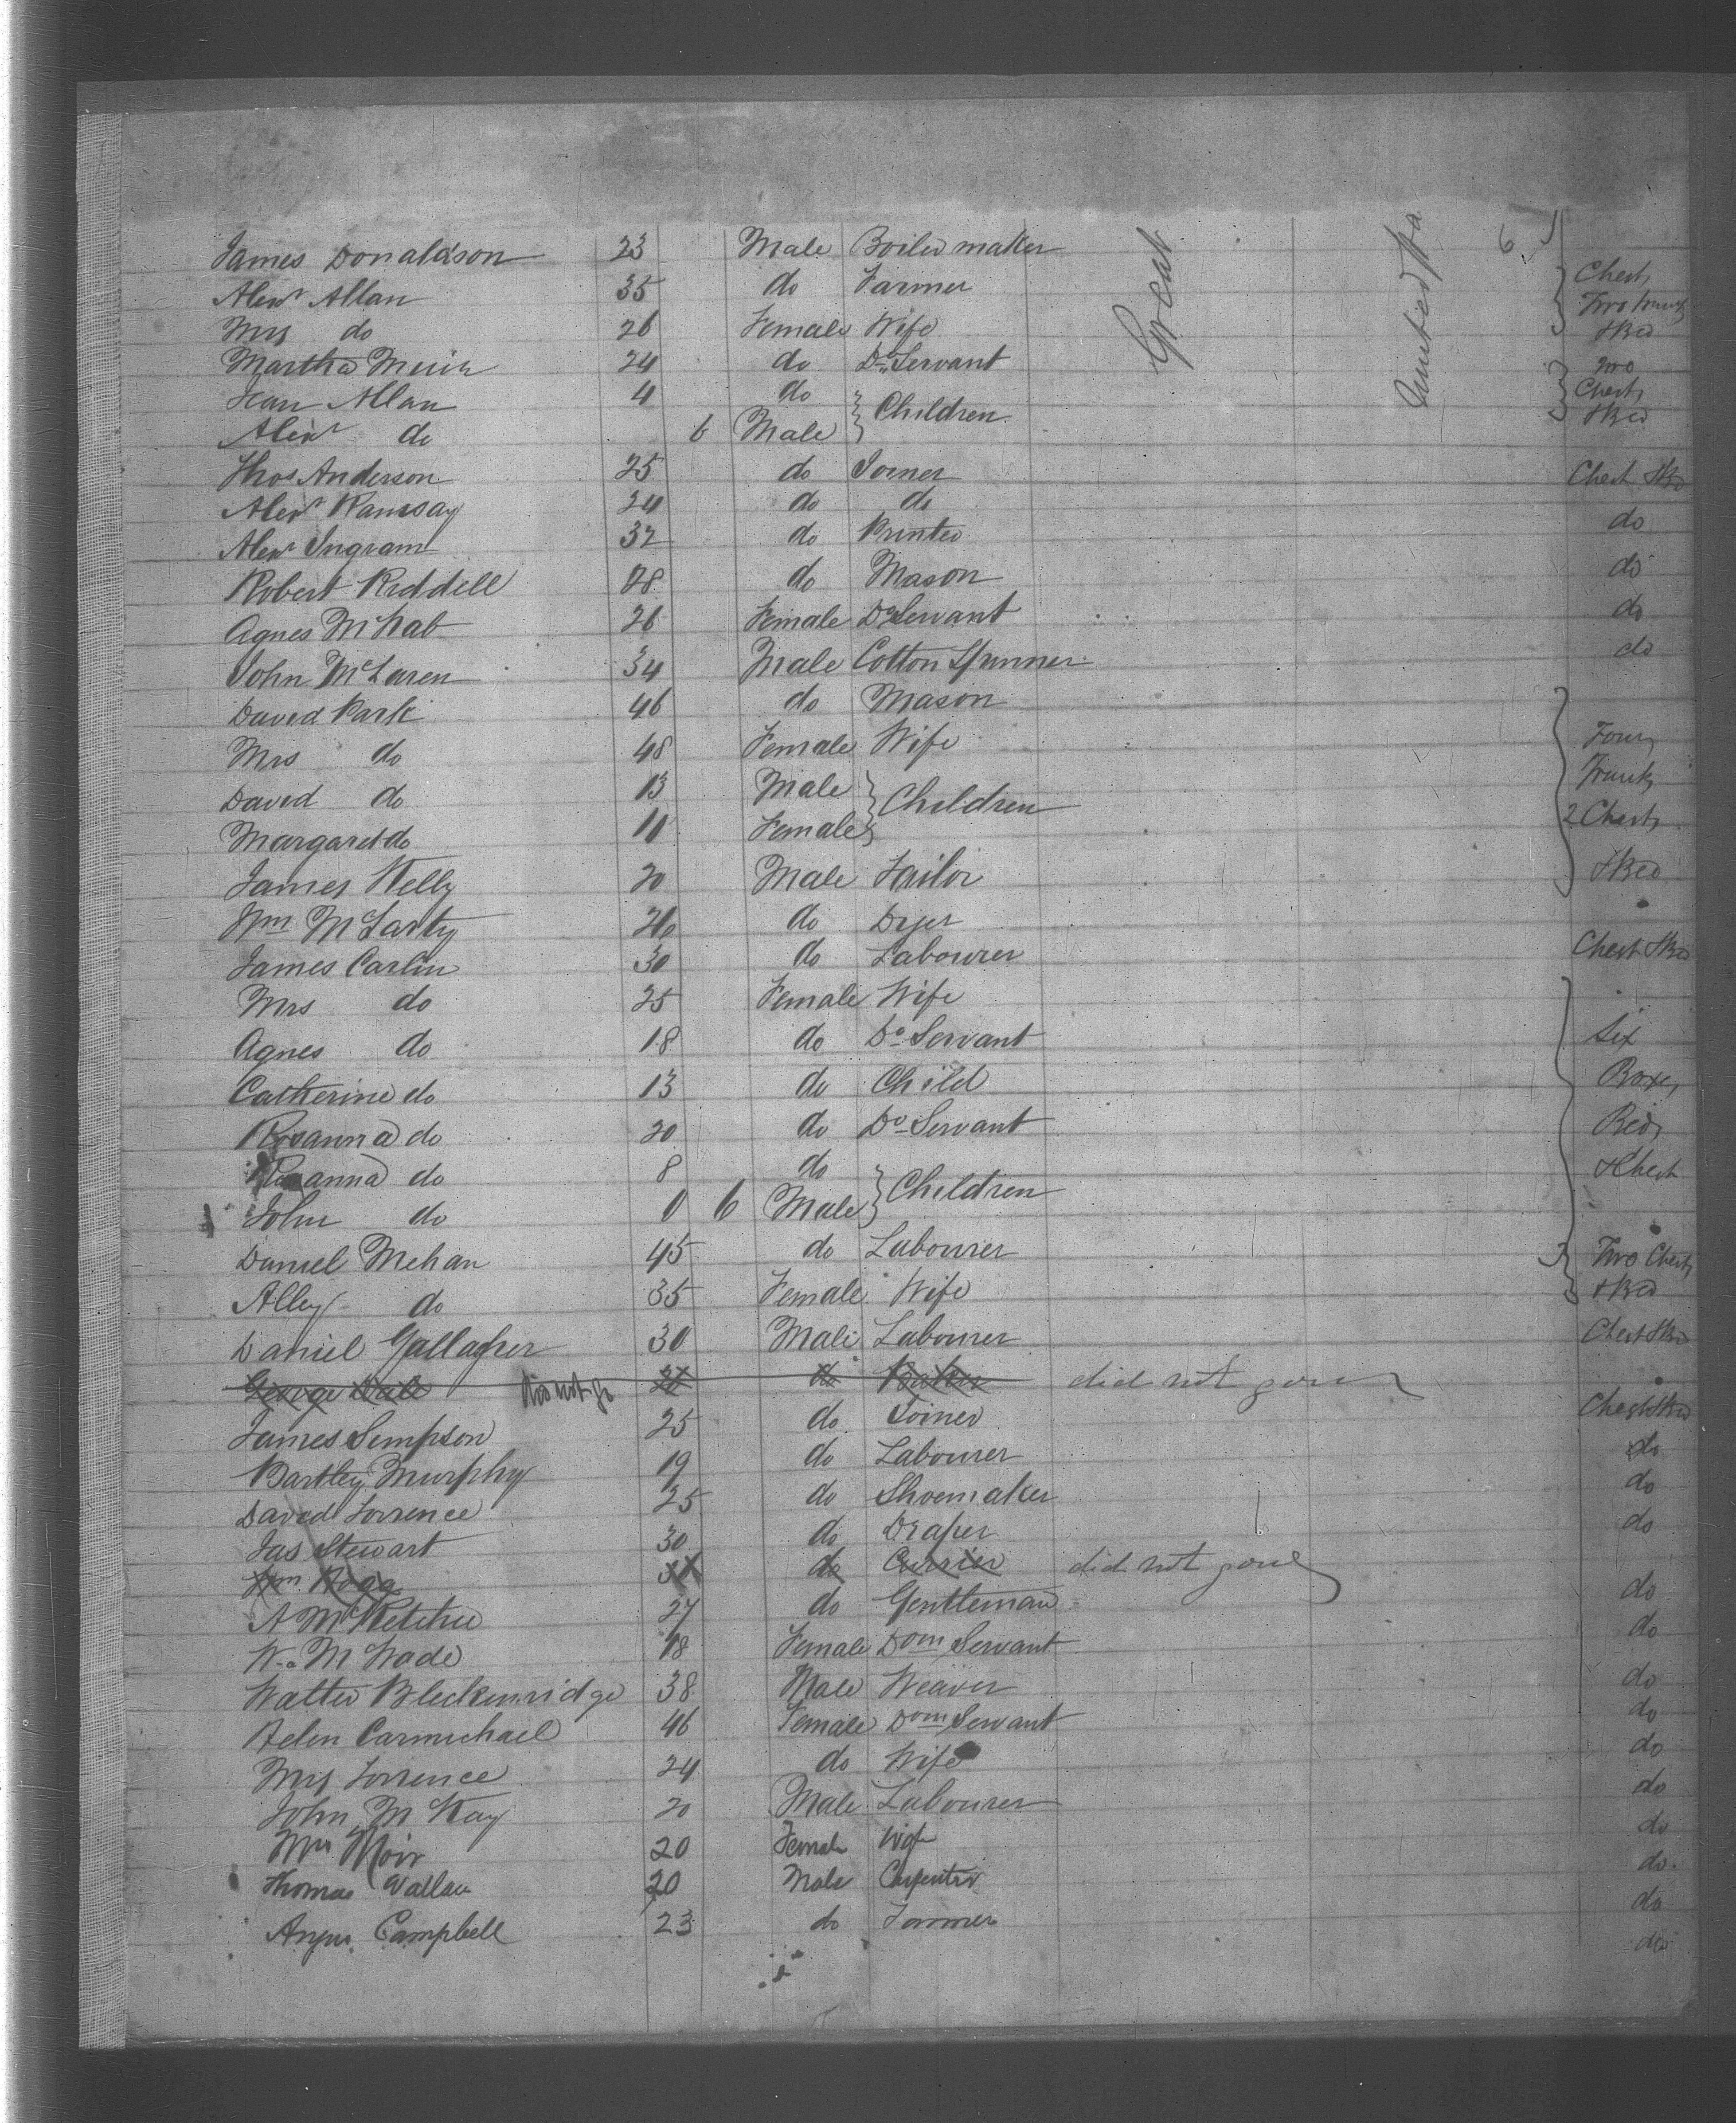 James Donaldson 23 Male Boiler maker Great United Sta 6
Alexr Allan 35 do Farmer Chest,
Mrs do 26 Female Wife Two trunks & Bed
Martha Muir 24 do Do Servant Two
Jean Allan 4 do Children Chest,
Alexr do 6 Male & Bed
Thos Anderson 25 do Joiner Chest & Bed
Alexr Ramsay 24 do do do
Alexr Ingram 32 do Printer do
Robert Riddell 28 do Mason do
Agnes McNab 26 Female Do Servant do
John McLaren 34 Male Cotton Spinner
David Park 46 do Mason
Mrs do 48 Female Wife Four
David do 13 Male Children Trunks
Margaret do 11 Female 2 Chests
James Kelly 20 Male Tailor & Bed
Wm McLarty do Dyer
James Carlin 30 do Labourer Chest & Bed
Mrs do 25 Female Wife
Agnes do 18 do Do Servant Six
Catherine do 13 do Child Boxes,
Rosanna do 20 do Do Servant Bed,
do 8 do Children & Chest
John do 0 6 Male
Daniel Mehan 45 do Labourer Two Chests
Alley do 35 Female Wife & Bed
Daniel Gallagher 30 Male Labourer Chest & Bed
George did not go do Baker did not go
James Simpson 25 do Joiner Chest & Bed
Bartley Murphy 19 do Labourer do
David Torrence 25 do Shoemaker do
Jas Stewart 30 do Draper do
Wm Hogg do Currier did not
A McKetchie 27 do Gentleman do
Wade 18 Female Dom Servant do
Walter Bleckenridge 38 Male Weaver do
Helen Carmichael 46 Female Dom Servant do
Mrs Torrence 24 do Wife do
John McKay 20 Male Labourer do
Mrs Moir 20 Female Wife do
Thomas Wallace 20 Male Carpenter do
Angus Campbell 23 do Farmer do
do